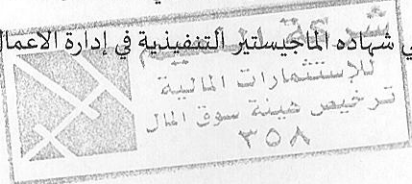 ي شهاده الماجيستير التنفيذية في إدارة الاعمال
شركة
للإستثمارات المالية
ترخيص هيئة سوق المال
٣٥٨